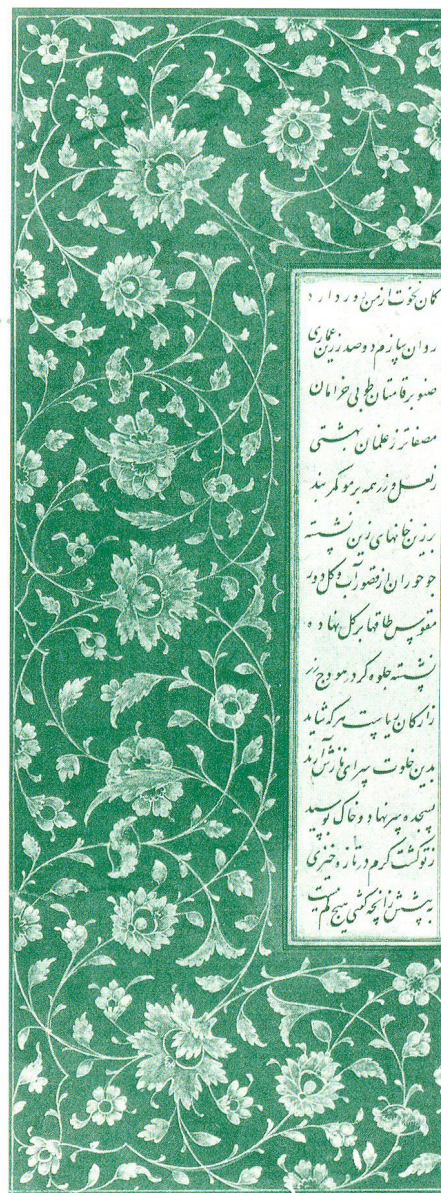 کان نخوت از من دور دارد
روان سازم دو صد زرین عماری
صنوبر قامتان طوبی خرامان
مصفاتر ز غلمان بهشتی
ز لعل و زر همه بر مو کمر بند
بزرین خانهای زین نشسته
چو حوران از قصور آب و کل دور
مقوس طاقها بر کل نهاده
نشسته جلوه کر در هودج زر
ز ارکان ریاست هر که شاید
بدین خلوت سرای نازش آرند
بسجده سر نهاد و خاک بوسید
ز تو کشت کرم در تازه خیزی
پیشش زانچه کفتی هیچ کم نیست